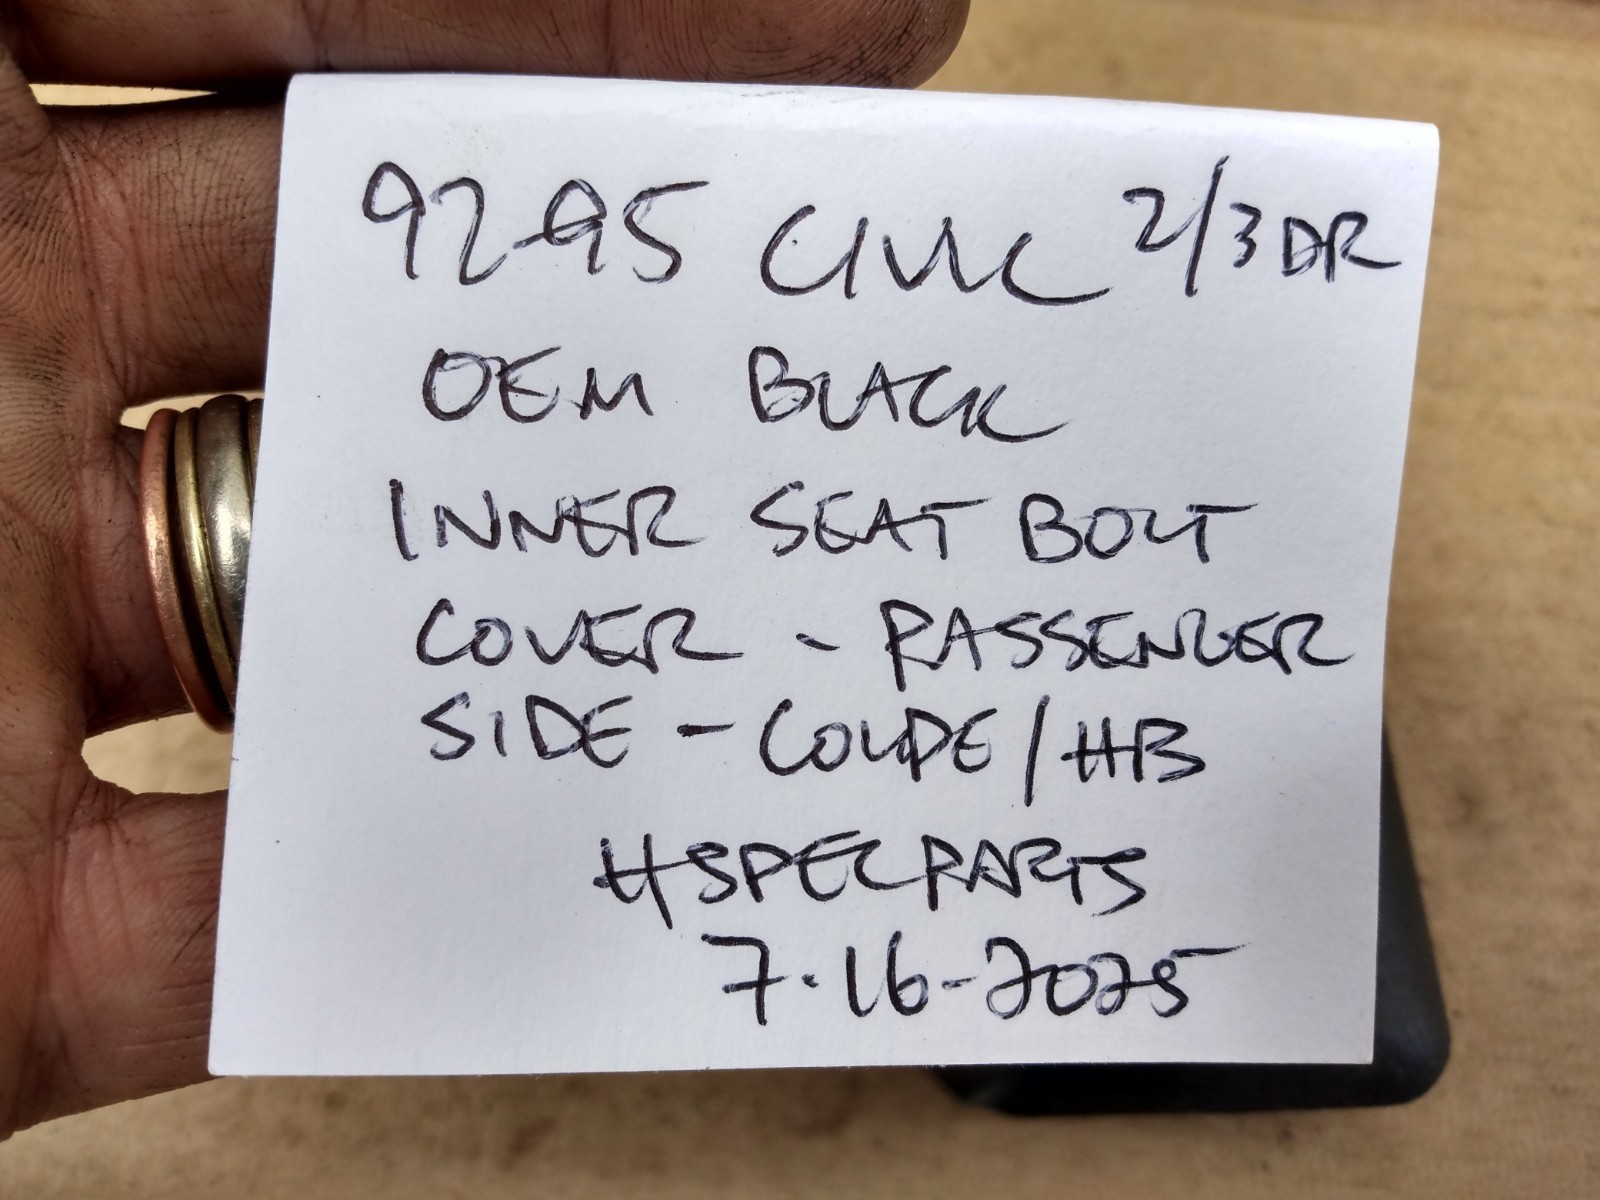 92-95 CIVIC 2/3 DR
OEM BLACK
INNER SEAT BOLT
COVER - PASSENGER
SIDE - COUPE/HB
HSPECPARTS
7·16-2025